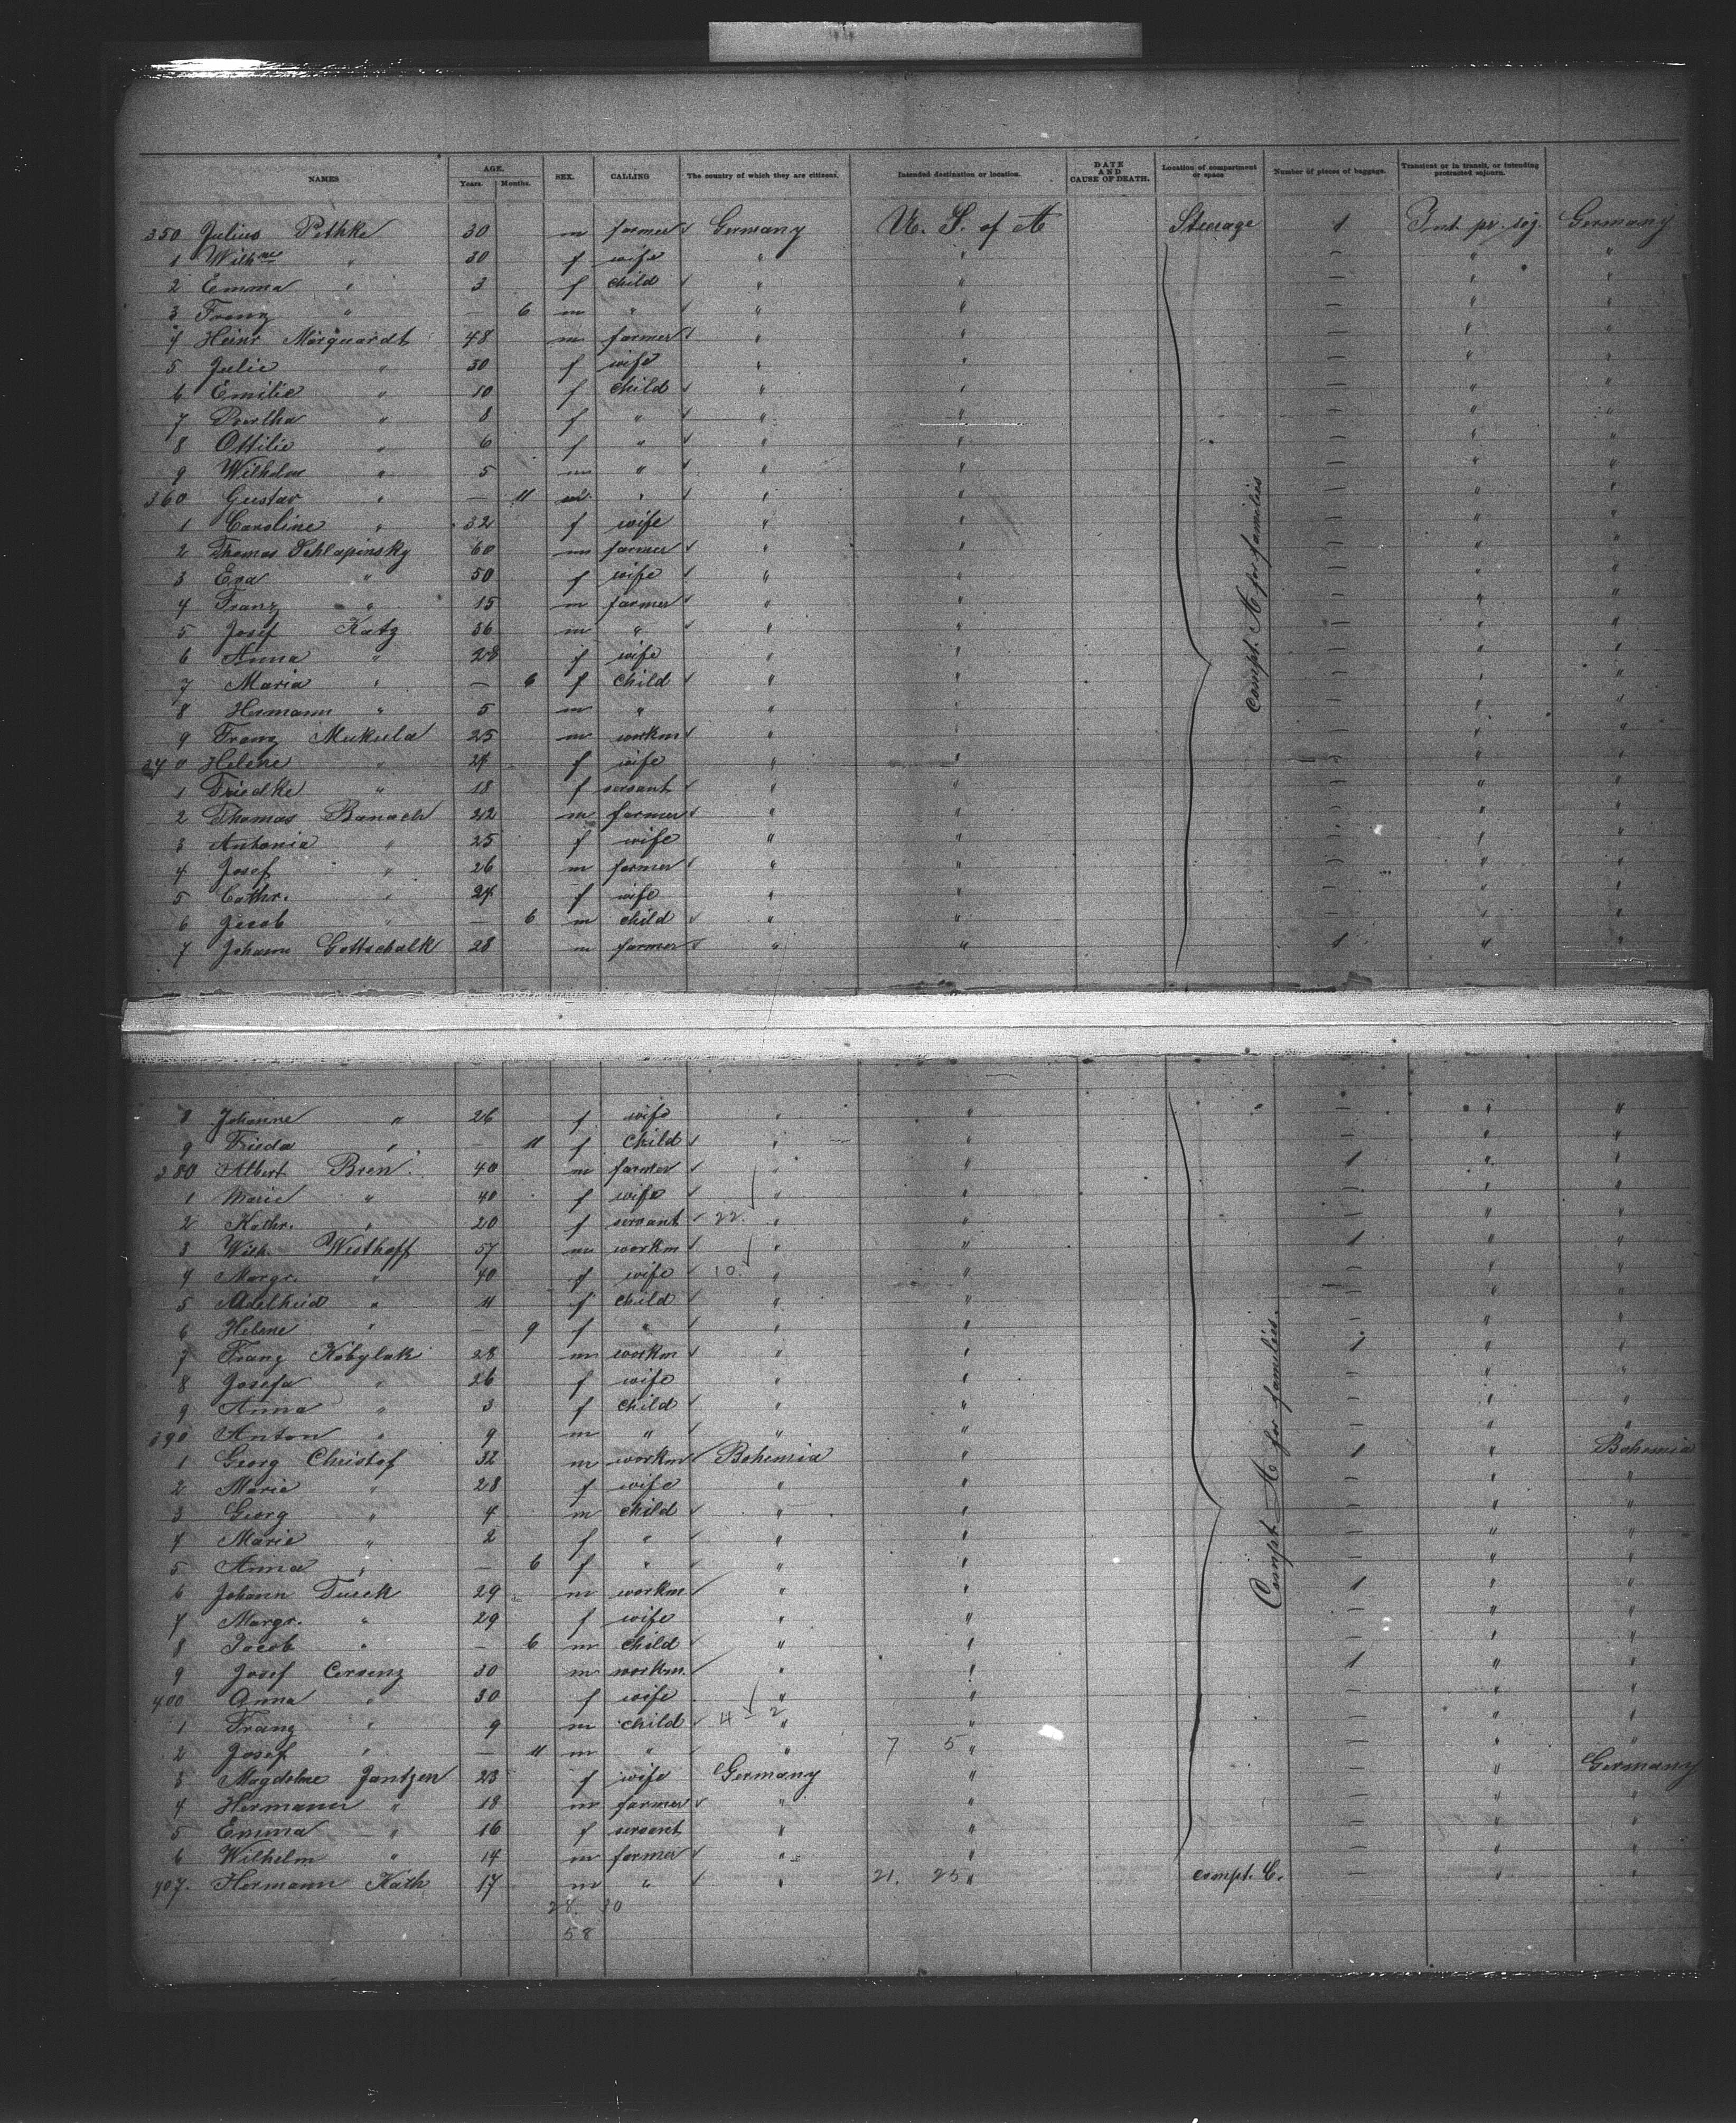 NAMES AGE. Years. Months. SEX. CALLING The country of which they are citizens. Intended destination or location. DATE AND CAUSE OF DEATH. Location of compartment or space Number of pieces of baggage. Transient or in transit, or intending protracted sojourn.
350 Julius Pethke 30 m farmer Germany U. S. of A Steerage 1 Int pr. soj. Germany
1 Wilhne " 30 f wife " " — " "
2 Emma " 3 f child " " — " "
3 Franz " — 6 m " " " — " "
4 Heinr Marquardt 48 m farmer " " — " "
5 Julie " 30 f wife " " — " "
6 Emilie " 10 f child " " — " "
7 Bertha " 8 f " " " — " "
8 Ottilie " 6 f " " " — " "
9 Wilhelm " 5 m " " " — " "
360 Gustav " — 11 m " " " — " "
1 Caroline " 32 f wife " " — " "
2 Thomas Schlapinsky 60 m farmer " " — " "
3 Eva " 50 f wife " " — " "
4 Franz " 15 m farmer " " — " "
5 Josef Katz 36 m " " " — " "
6 Anna " 28 f wife " " — " "
7 Maria " — 6 f child " " — " "
8 Hermann " 5 m " " " — " "
9 Franz Mukula 25 m workm " " — " "
340 Helene " 24 f wife " " — " "
1 Friedke " 18 f servant " " — " "
2 Thomas Banach 22 m farmer " " — " "
3 Antonia " 25 f wife " " — " "
4 Josef " 26 m farmer " " — " "
5 Cathr. " 24 f wife " " — " "
6 Jacob " — 6 m child " " — " "
7 Johann Gottschalk 28 m farmer " " 1 " "
compt. A for families
8 Johanne " 26 f wife " " — " "
9 Frieda " — 11 f child " " — " "
380 Albert Bren 40 m farmer " " 1 " "
1 Marie " 40 f wife " " — " "
2 Kathr. " 20 f servant 22 " " — " "
3 Wilh. Westhoff 57 m workm " " 1 " "
4 Margr. " 40 f wife 10 " " — " "
5 Adelheid " 11 f child " " — " "
6 Helene " — 9 f " " " — " "
7 Franz Kobylak 28 m workm " " 1 " "
8 Josefa " 26 f wife " " — " "
9 Anna " 3 f child " " — " "
390 Anton " 9 m " " " — " "
1 Georg Christof 32 m workm Bohemia " 1 " Bohemia
2 Maria " 28 f wife " " — " "
3 Georg " 4 m child " " — " "
4 Marie " 2 f " " " — " "
5 Anna " — 6 f " " " — " "
6 Johann Turek 29 m workm " " 1 " "
7 Margr. " 29 f wife " " — " "
8 Jacob " — 6 m child " " — " "
9 Josef Cersenz 30 m workm. " " 1 " "
400 Anna " 30 f wife " " — " "
1 Franz " 9 m child 4 – 2 " " — " "
2 Josef " — 11 m " " 7 5 " — " "
3 Magdelne Jantzen 23 f wife Germany " — " Germany
4 Hermann " 18 m farmer " " — " "
5 Emma " 16 f servant " " — " "
6 Wilhelm " 14 m farmer " " — " "
407. Hermann Käth 17 m " " 21. 25 " compt. C. — " "
Compt A for families.
28. 30
58